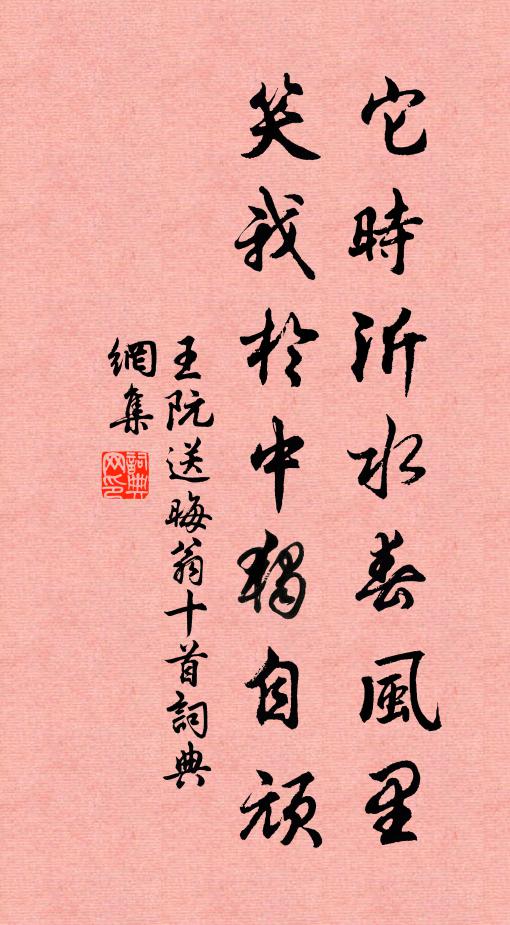 它時沂水春風里
笑我於中獨自頑
王阮送晦翁十首詞典
網集
詞典
网印